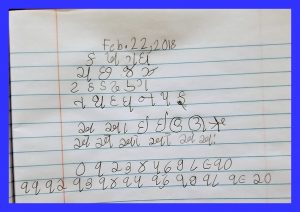 Feb. 22, 2018
ક ખ ગ ઘ
ચ છ જ ઝ
ટ ઠ ડ ઢ ણ
ત થ દ ધ ન પ ફ
અ આ ઇ ઈ ઉ ઊ
અં અઃ
૦ ૧ ૨ ૩ ૪ ૫ ૬ ૭ ૮ ૯ ૧૦
૧૧ ૧૨ ૧૩ ૧૪ ૧૫ ૧૬ ૧૭ ૧૮ ૧૯ ૨૦